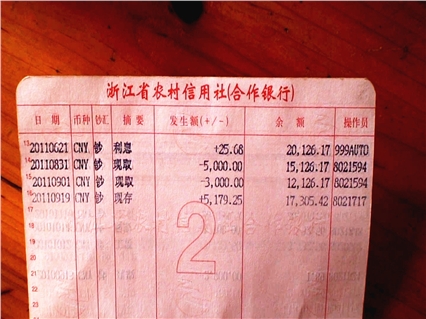 浙江省农村信用社(合作银行)
日 期 币种 钞汇 摘 要 发生额(+/-) 余 额 操作员
13 20110621 CNY 钞 利息 +25.68 20,126.17 999AUTO
14 20110831 CNY 钞 现取 -5,000.00 15,126.17 8021594
15 20110901 CNY 钞 现取 -3,000.00 12,126.17 8021594
16 20110919 CNY 钞 现存 +5,179.25 17,305.42 8021717
17
18
19
20
21
22
23
2